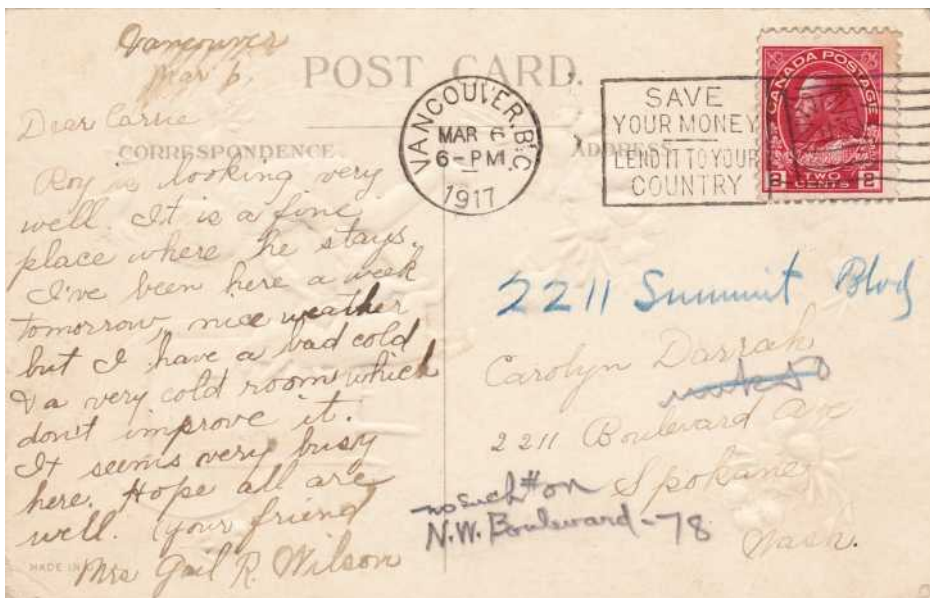 Vancouver
Mar 6.
POST CARD.
Dear Carrie
CORRESPONDENCE
Roy is looking very
well. It is a fine
place where he stays.
I've been here a week
tomorrow, nice weather
but I have a bad cold
& a very cold room which
don't improve it.
It seems very busy
here. Hope all are
well. Your friend
Mrs Gail R. Wilson
MADE IN
VANCOUVER. B.C.
MAR 6
6-PM
1917
ADDRESS
SAVE
YOUR MONEY
LEND IT TO YOUR
COUNTRY
CANADA POSTAGE
2 TWO CENTS 2
2211 Summit Blvd
Carolyn Darrah
2211 Boulevard Ave
Spokane
Wash.
no such # on
N.W. Boulevard - 78